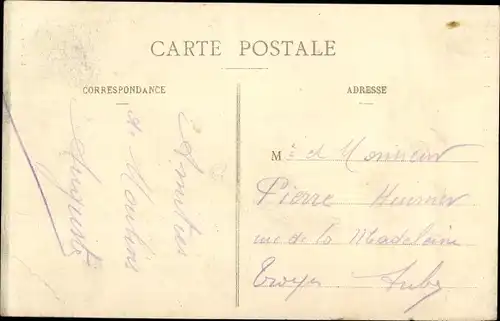 CARTE POSTALE
CORRESPONDANCE
Amitiés
de
Auguste
ADRESSE
M e et Monsieur
Pierre
rue de la Madeleine
Troyes Aube